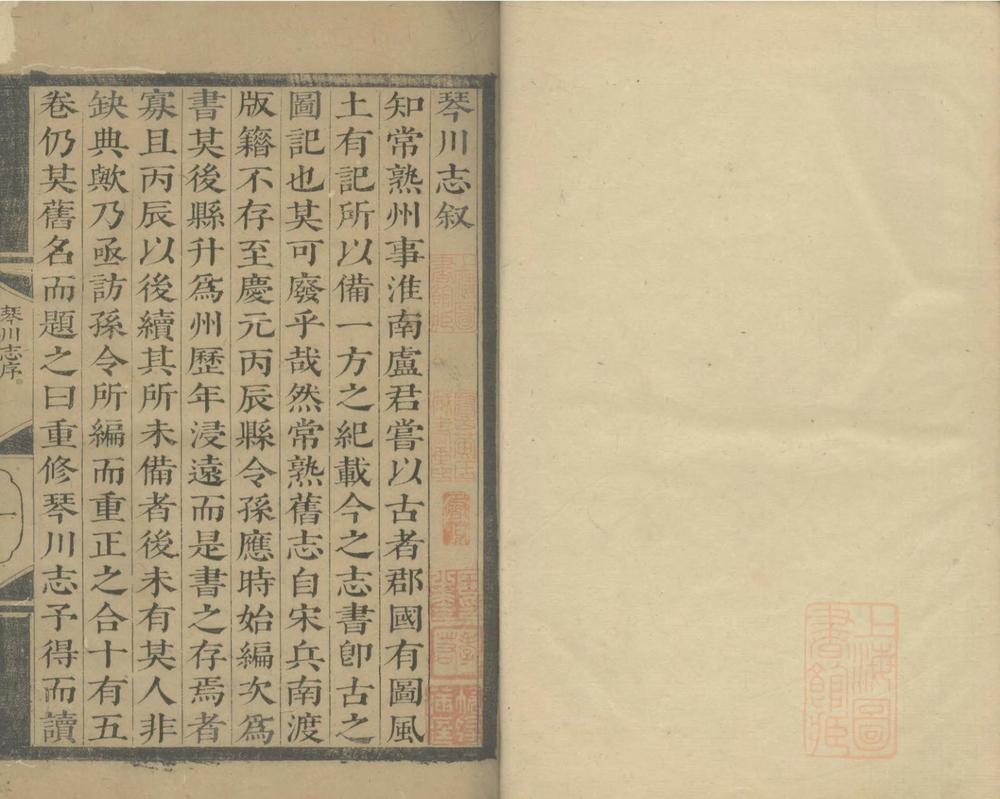 琴川志叙
知常熟州事淮南盧君嘗以古者郡國有圖風
土有記所以備一方之紀載今之志書卽古之
圖記也其可廢乎哉然常熟舊志自宋兵南渡
版籍不存至慶元丙辰縣令孫應時始編次爲
書其後縣升爲州歷年浸遠而是書之存焉者
寡且丙辰以後續其所未備者後未有其人非
缺典歟乃亟訪孫令所編而重正之合十有五
卷仍其舊名而題之曰重修琴川志予得而讀
琴川志序
一
上海圖
書館藏